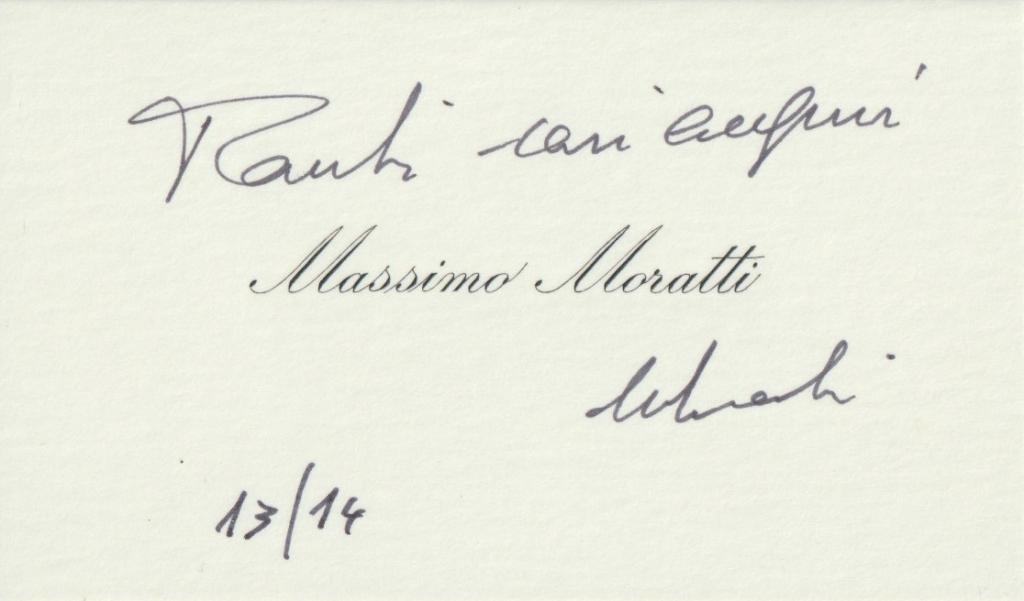 Tanti cari auguri
Massimo Moratti
Moratti
13/14